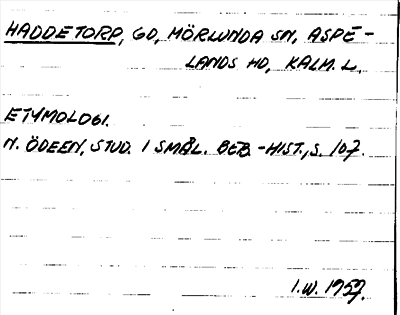 HADDETORP, GD, MÖRLUNDA SN, ASPE-
LANDS HD, KALM. L.
ETYMOLOGI.
N. ÖDEEN, STUD. I SMÅL. BEB.-HIST., S. 107.
I.W. 1957.